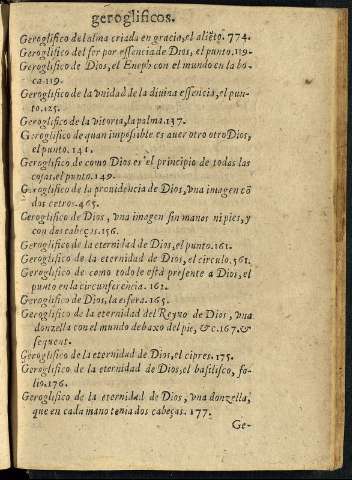 geroglificos.
Geroglifico del alma criada en gracia, el alieto. 774.
Geroglifico del ser por essencia de Dios, el punto. 119.
Geroglifico de Dios, el Eneph con el mundo en la bo-
ca. 119.
Geroglifico de la vnidad de la diuina essencia, el pun-
to. 125.
Geroglifico de la vitoria, la palma. 137.
Geroglifico de quan impossible es auer otro otro Dios,
el punto. 141.
Geroglifico de como Dios es el principio de todas las
cosas, el punto. 149.
Geroglifico de la prouidencia de Dios, vna imagen cō
dos cetros. 465.
Geroglifico de Dios, vna imagen sin manos ni pies, y
con dos cabeças. 156.
Geroglifico de la eternidad de Dios, el punto. 161.
Geroglifico de la eternidad de Dios, el circulo. 561.
Geroglifico de como todo le està presente a Dios, el
punto en la circunferencia. 162.
Geroglifico de Dios, la esfera. 165.
Geroglifico de la eternidad del Reyno de Dios, vna
donzella con el mundo debaxo del pie, &c. 167. &
sequent.
Geroglifico de la eternidad de Dios, el cipres. 175.
Geroglifico de la eternidad de Dios, el basilisco, fo-
lio. 176.
Geroglifico de la eternidad de Dios, vna donzella,
que en cada mano tenia dos cabeças. 177.
Ge-